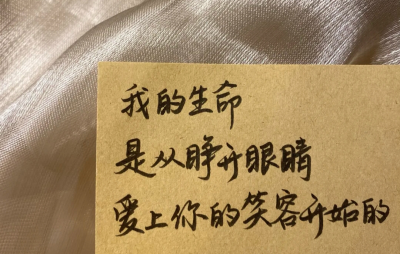 我的生命
是从睁开眼睛
爱上你的笑容开始的